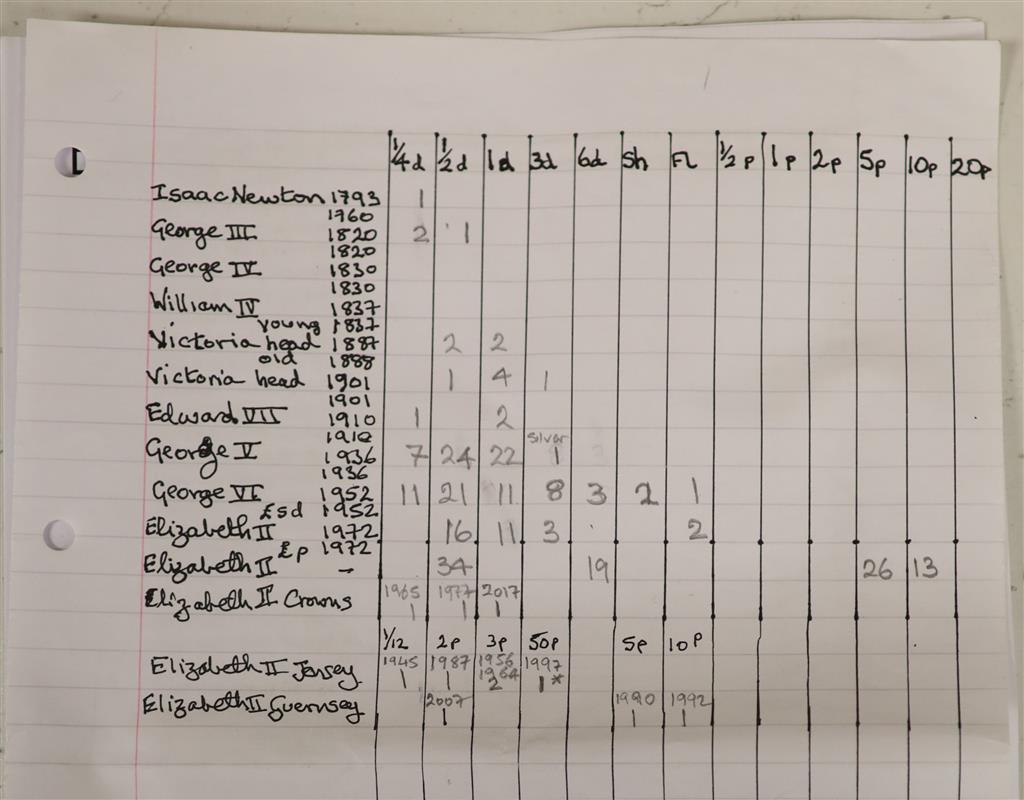 1/4 d 1/2 d 1d 3d 6d Sh Fl 1/2 p 1p 2p 5p 10p 20p
Isaac Newton 1793 1
1760
George III 1820 2 1
1820
George IV 1830
1830
William IV 1837
young 1837
Victoria head 1887 2 2
old 1888
Victoria head 1901 1 4 1
1901
Edward VII 1910 1 2
1910 silver
George V 1936 7 24 22 1
1936
George VI 1952 11 21 11 8 3 2 1
£sd 1952
Elizabeth II 1972 16 11 3 2
£p 1972
Elizabeth II - 34 19 26 13
1965 1977 2017
Elizabeth II Crowns 1 1 1
1/12 2p 3p 50p 5p 10p
1945 1987 1956 1997
Elizabeth II Jersey 1964
1 1 2 1*
2007 1990 1992
Elizabeth II Guernsey 1 1 1